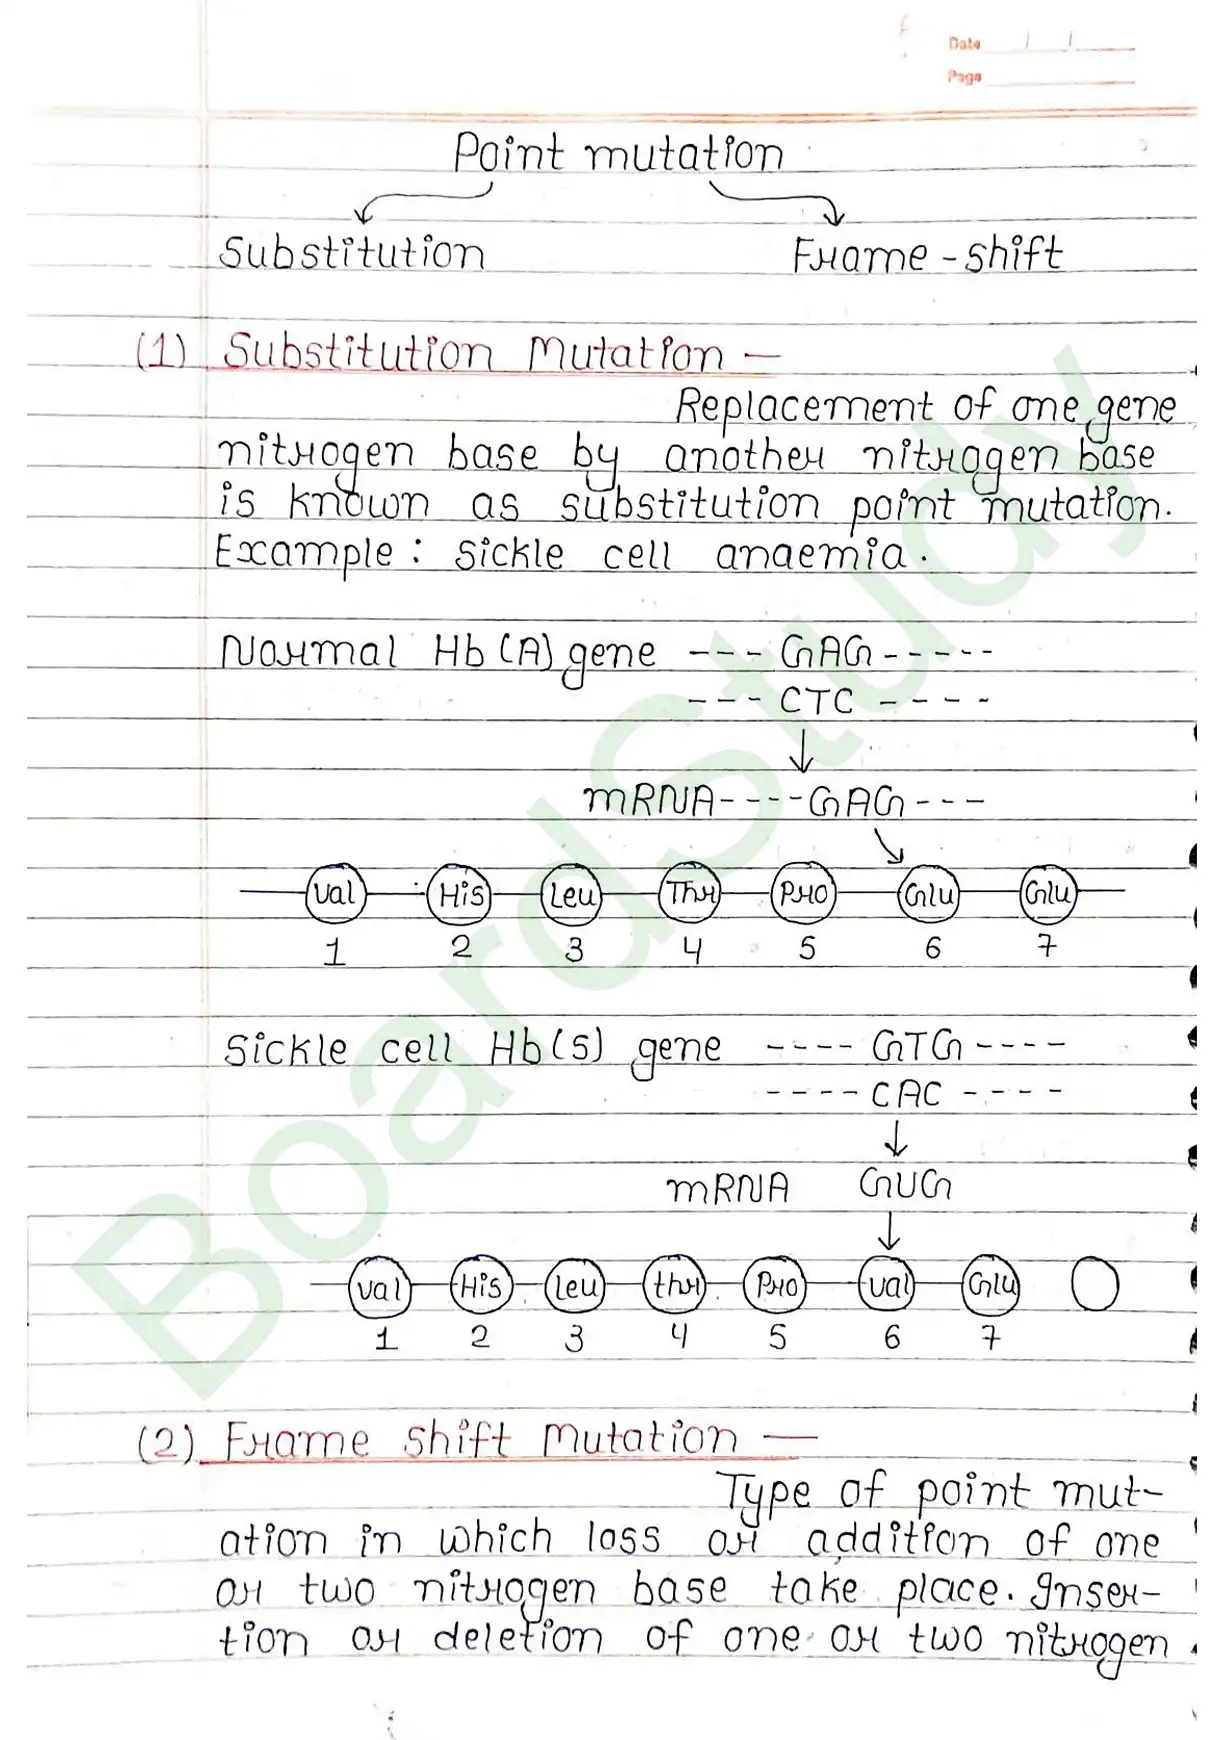 Date / /
Page
Point mutation
Substitution Frame-shift
(1) Substitution Mutation —
Replacement of one gene
nitrogen base by another nitrogen base
is known as substitution point mutation.
Example: Sickle cell anaemia.
Normal Hb(A) gene --- GAG -----
--- CTC ----
mRNA----GAG---
Val His Leu Thr Pro Glu Glu
1 2 3 4 5 6 7
Sickle cell Hb(S) gene ---- GTG ----
---- CAC ----
mRNA GUG
Val His Leu thr Pro Val Glu
1 2 3 4 5 6 7
(2) Frame Shift Mutation —
Type of point mut-
ation in which loss or addition of one
or two nitrogen base take place. Inser-
tion or deletion of one or two nitrogen
BoardStudy